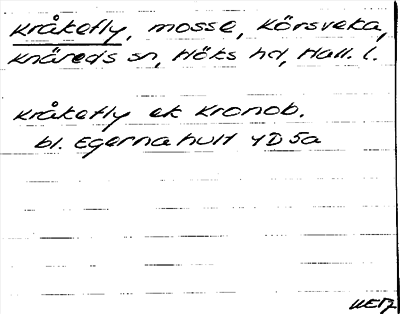 Kråkefly, mosse, Körsveka,
Knäreds sn, Höks hd, Hall. l.
Kråkefly ek Kronob.
bl. Egernahult 4D5a